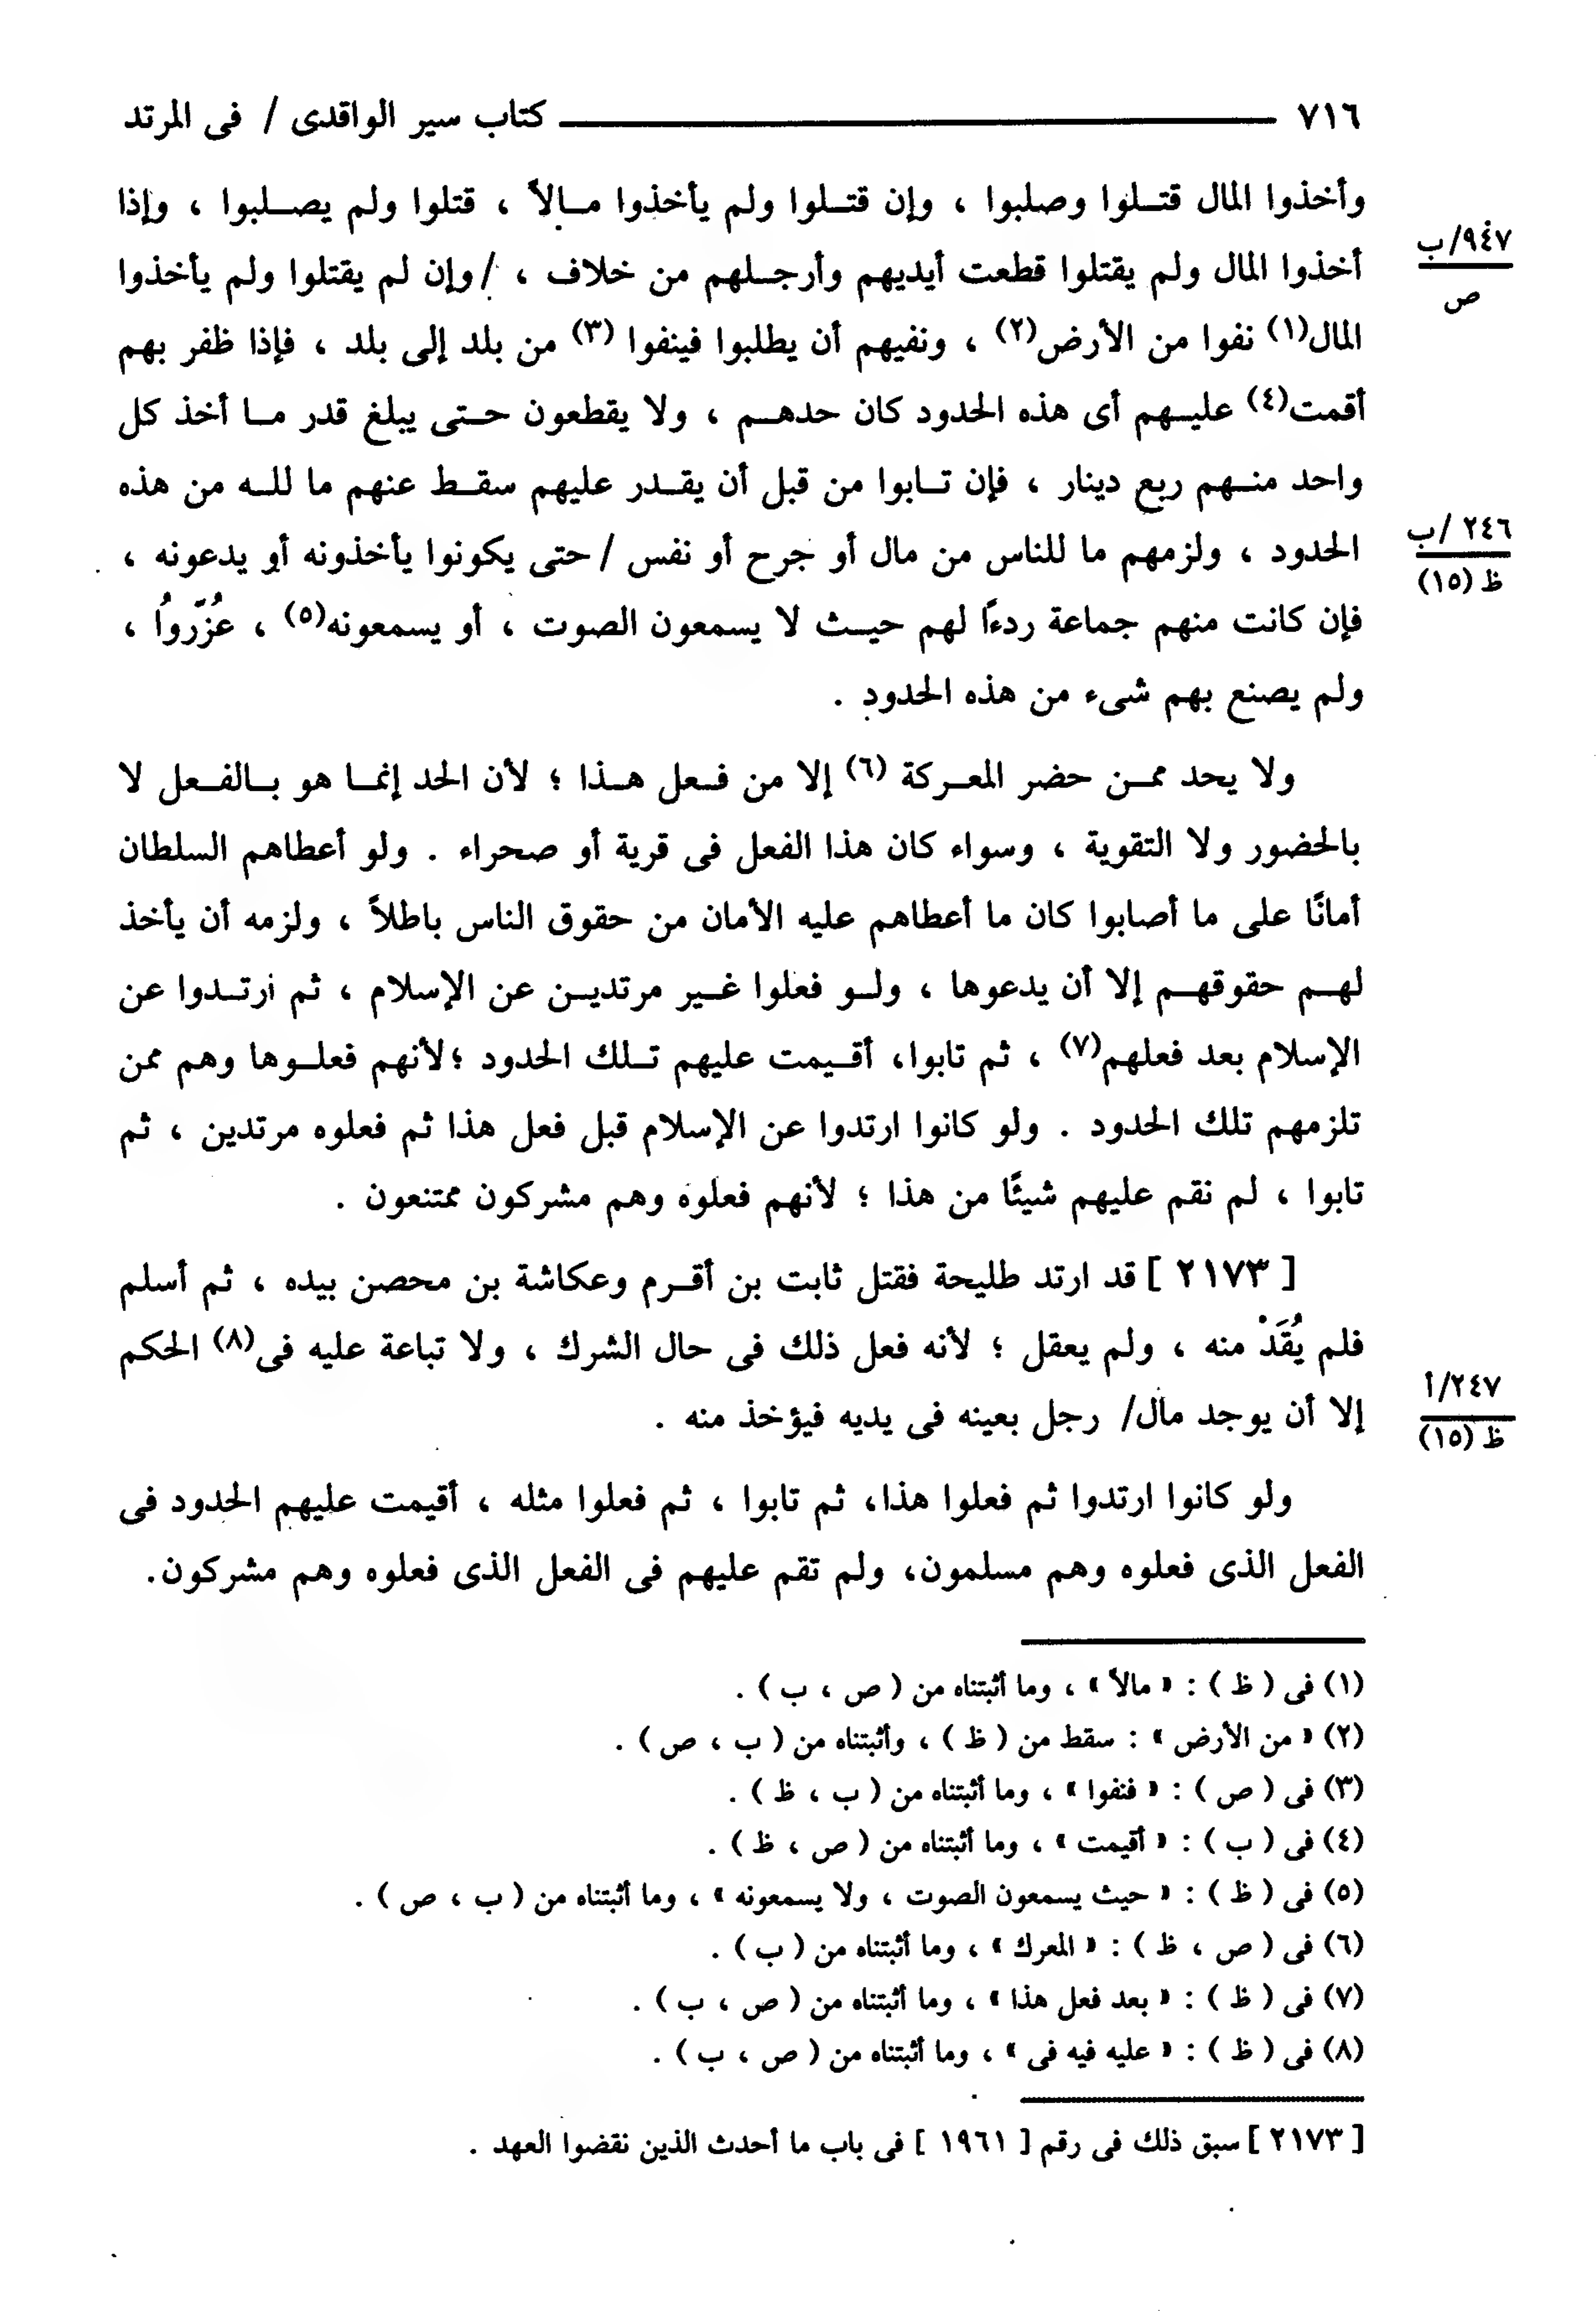 ٧١٦ ـــــــــ كتاب سير الواقدى / فى المرتد
وأخذوا المال قتلوا وصلبوا ، وإن قتلوا ولم يأخذوا مالاً ، قتلوا ولم يصلبوا ، وإذا
٩٤٧/ب
ص
أخذوا المال ولم يقتلوا قطعت أيديهم وأرجلهم من خلاف ، / وإن لم يقتلوا ولم يأخذوا
المال(١) نفوا من الأرض(٢) ، ونفيهم أن يطلبوا فينفوا (٣) من بلد إلى بلد ، فإذا ظفر بهم
أقمت(٤) عليهم أى هذه الحدود كان حدهم ، ولا يقطعون حتى يبلغ قدر ما أخذ كل
واحد منهم ربع دينار ، فإن تابوا من قبل أن يقدر عليهم سقط عنهم ما لله من هذه
٢٤٦ /ب
ظ (١٥)
الحدود ، ولزمهم ما للناس من مال أو جرح أو نفس / حتى يكونوا يأخذونه أو يدعونه ،
فإن كانت منهم جماعة ردءًا لهم حيث لا يسمعون الصوت ، أو يسمعونه(٥) ، عُزّروُا ،
ولم يصنع بهم شىء من هذه الحدود .
ولا يحد ممن حضر المعركة (٦) إلا من فعل هذا ؛ لأن الحد إنما هو بالفعل لا
بالحضور ولا التقوية ، وسواء كان هذا الفعل فى قرية أو صحراء . ولو أعطاهم السلطان
أمانًا على ما أصابوا كان ما أعطاهم عليه الأمان من حقوق الناس باطلاً ، ولزمه أن يأخذ
لهم حقوقهم إلا أن يدعوها ، ولو فعلوا غير مرتدين عن الإسلام ، ثم ارتدوا عن
الإسلام بعد فعلهم(٧) ، ثم تابوا، أقيمت عليهم تلك الحدود ؛لأنهم فعلوها وهم ممن
تلزمهم تلك الحدود . ولو كانوا ارتدوا عن الإسلام قبل فعل هذا ثم فعلوه مرتدين ، ثم
تابوا ، لم نقم عليهم شيئًا من هذا ؛ لأنهم فعلوه وهم مشركون ممتنعون .
[ ٢١٧٣ ] قد ارتد طليحة فقتل ثابت بن أقرم وعكاشة بن محصن بيده ، ثم أسلم
فلم يُقَدْ منه ، ولم يعقل ؛ لأنه فعل ذلك فى حال الشرك ، ولا تباعة عليه فى(٨) الحكم
٢٤٧/أ
ظ (١٥)
إلا أن يوجد مال/ رجل بعينه فى يديه فيؤخذ منه .
ولو كانوا ارتدوا ثم فعلوا هذا، ثم تابوا ، ثم فعلوا مثله ، أقيمت عليهم الحدود فى
الفعل الذى فعلوه وهم مسلمون، ولم تقم عليهم فى الفعل الذى فعلوه وهم مشركون.
(١) فى ( ظ ) : « مالاً » ، وما أثبتناه من ( ص ، ب ) .
(٢) « من الأرض » : سقط من ( ظ ) ، وأثبتناه من ( ب ، ص ) .
(٣) فى ( ص ) : « فنفوا » ، وما أثبتناه من ( ب ، ظ ) .
(٤) فى ( ب ) : « أقيمت » ، وما أثبتناه من ( ص ، ظ ) .
(٥) فى ( ظ ) : « حيث يسمعون الصوت ، ولا يسمعونه » ، وما أثبتناه من ( ب ، ص ) .
(٦) فى ( ص ، ظ ) : « المعرك » ، وما أثبتناه من ( ب ) .
(٧) فى ( ظ ) : « بعد فعل هذا » ، وما أثبتناه من ( ص ، ب ) .
(٨) فى ( ظ ) : « عليه فيه فى » ، وما أثبتناه من ( ص ، ب ) .
[ ٢١٧٣ ] سبق ذلك فى رقم [ ١٩٦١ ] فى باب ما أحدث الذين نقضوا العهد .